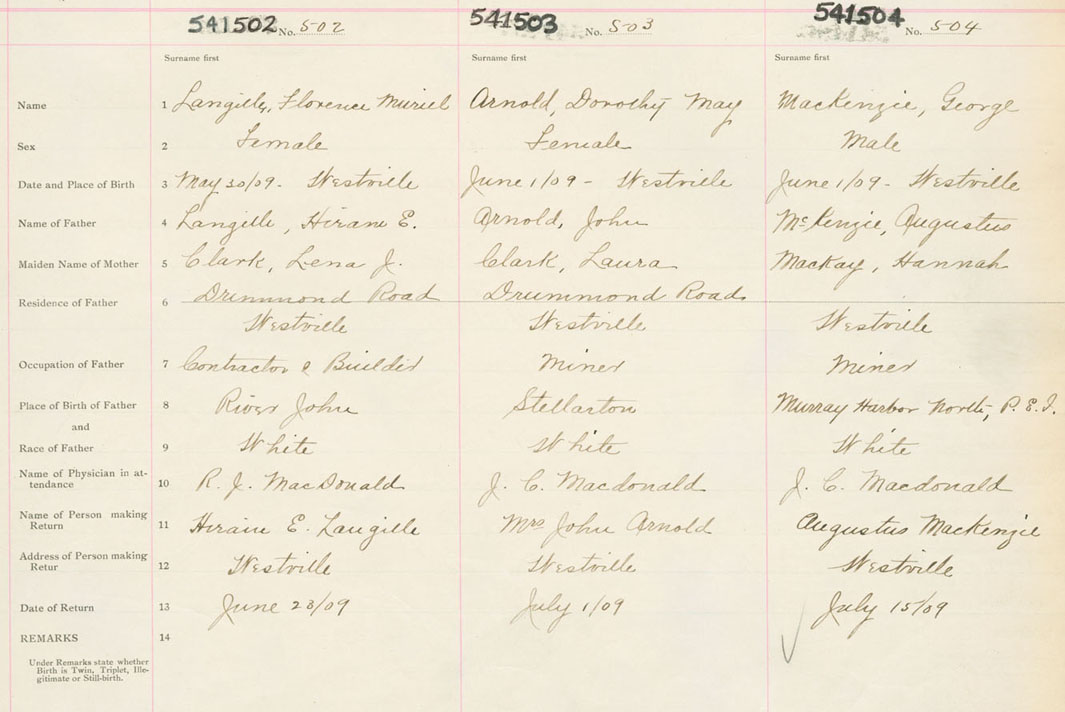 541502 No. 502 541503 No. 503 541504 No. 504
Surname first Surname first Surname first
Name 1 Langille, Florence Muriel Arnold, Dorothy May MacKenzie, George
Sex 2 Female Female Male
Date and Place of Birth 3 May 30/09- Westville June 1/09- Westville June 1/09- Westville
Name of Father 4 Langille, Hiram E. Arnold, John McKenzie, Augustus
Maiden Name of Mother 5 Clark, Lena J. Clark, Laura MacKay, Hannah
Residence of Father 6 Drummond Road Drummond Road
Westville Westville Westville
Occupation of Father 7 Contractor & Builder Miner Miner
Place of Birth of Father 8 River John Stellarton Murray Harbor North, P.E.I.
and
Race of Father 9 White White White
Name of Physician in at-
tendance 10 R. J. MacDonald J. C. Macdonald J. C. Macdonald
Name of Person making
Return 11 Hiram E. Langille Mrs John Arnold Augustus MacKenzie
Address of Person making
Retur 12 Westville Westville Westville
Date of Return 13 June 23/09 July 1/09 July 15/09
REMARKS 14
Under Remarks state whether
Birth is Twin, Triplet, Ille-
gitimate or Still-birth.